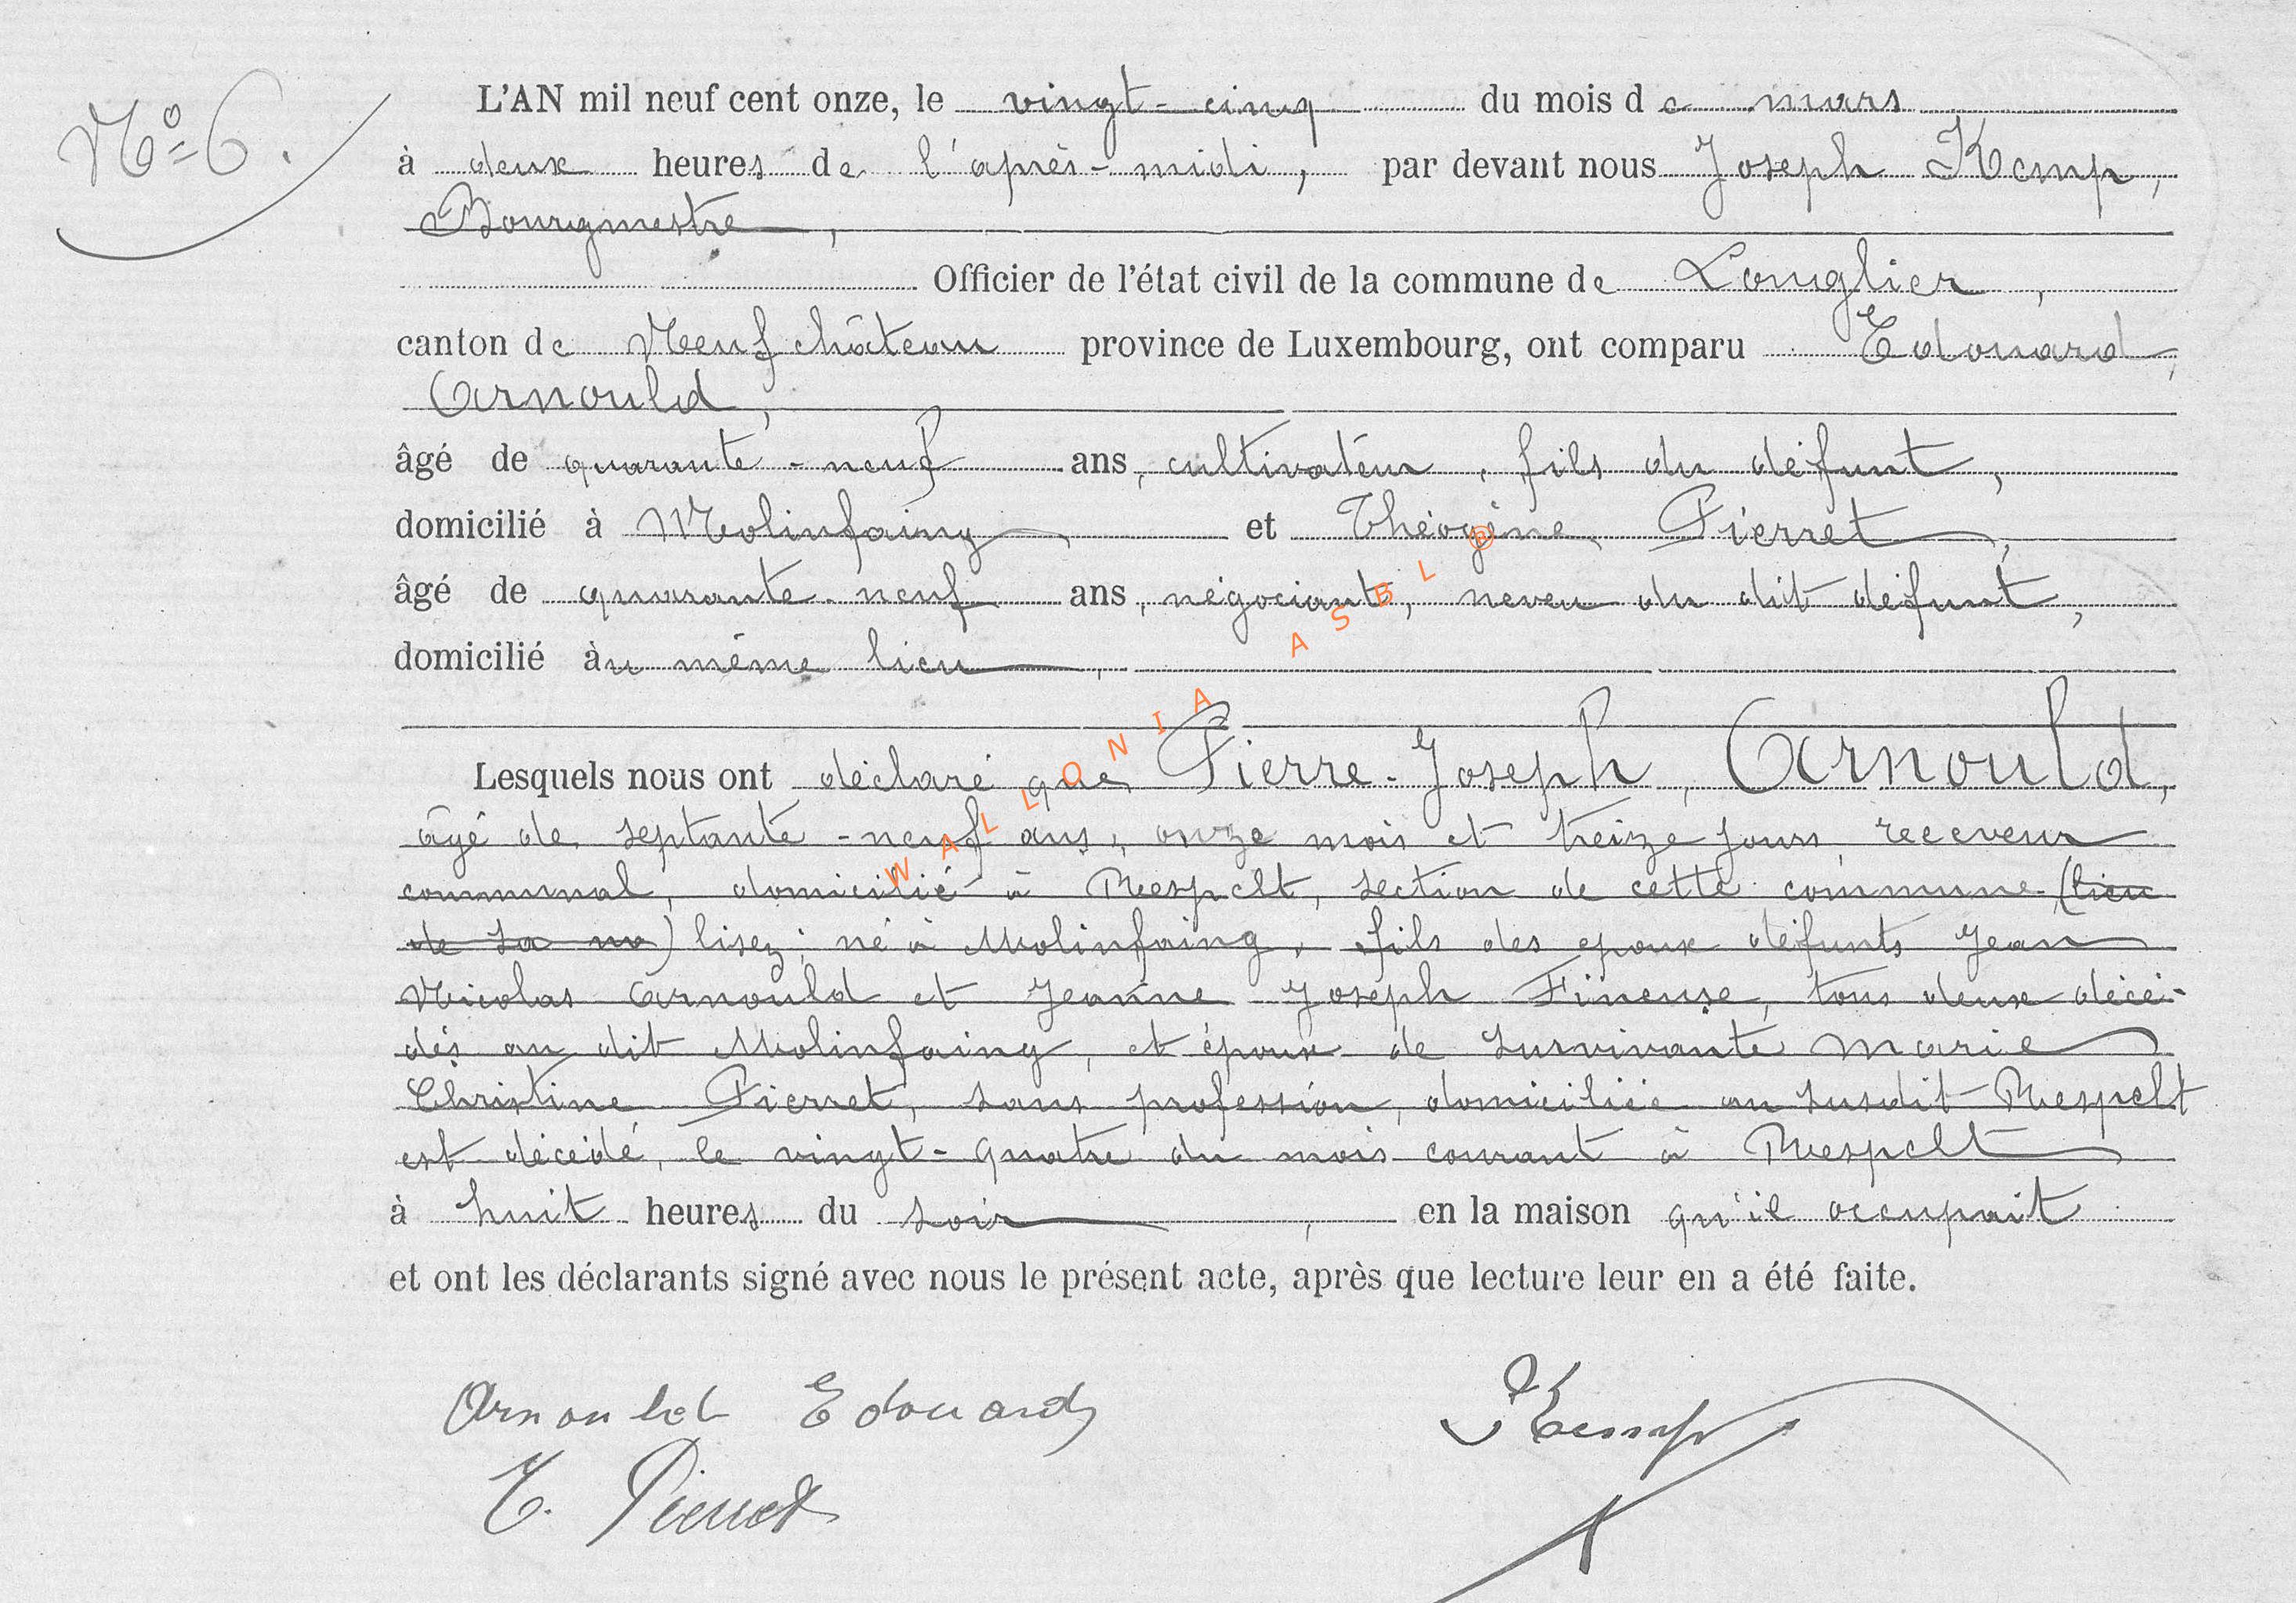 Nº 6.
L'AN mil neuf cent onze, le vingt-cinq du mois de mars
à deux heures de l'après-midi, par devant nous Joseph Kemp,
Bourgmestre,
Officier de l'état civil de la commune de Longlier,
canton de Neufchâteau province de Luxembourg, ont comparu Edouard
Arnould,
âgé de quarante-neuf ans, cultivateur, fils du défunt,
domicilié à Molinfaing et Théogène Pierret,
âgé de quarante-neuf ans, négociant, neveu du dit défunt,
domicilié au même lieu,
Lesquels nous ont déclaré que Pierre-Joseph, Arnould,
âgé de septante-neuf ans, onze mois et treize jours, receveur
communal, domicilié à Respelt, section de cette commune (lieu
de sa na) lisez: né à Molinfaing, fils des époux défunts Jean
Nicolas Arnould et Jeanne Joseph Fineuse, tous deux décé-
dés au dit Molinfaing, et époux de survivante Marie
Christine Pierret, sans profession, domiciliée au susdit Respelt
est décédé, le vingt-quatre du mois courant à Respelt
à huit heures du soir, en la maison qu'il occupait
et ont les déclarants signé avec nous le présent acte, après que lecture leur en a été faite.
Arnould Edouard
Kemp
T. Pierret
WALLONIA ASBL ®